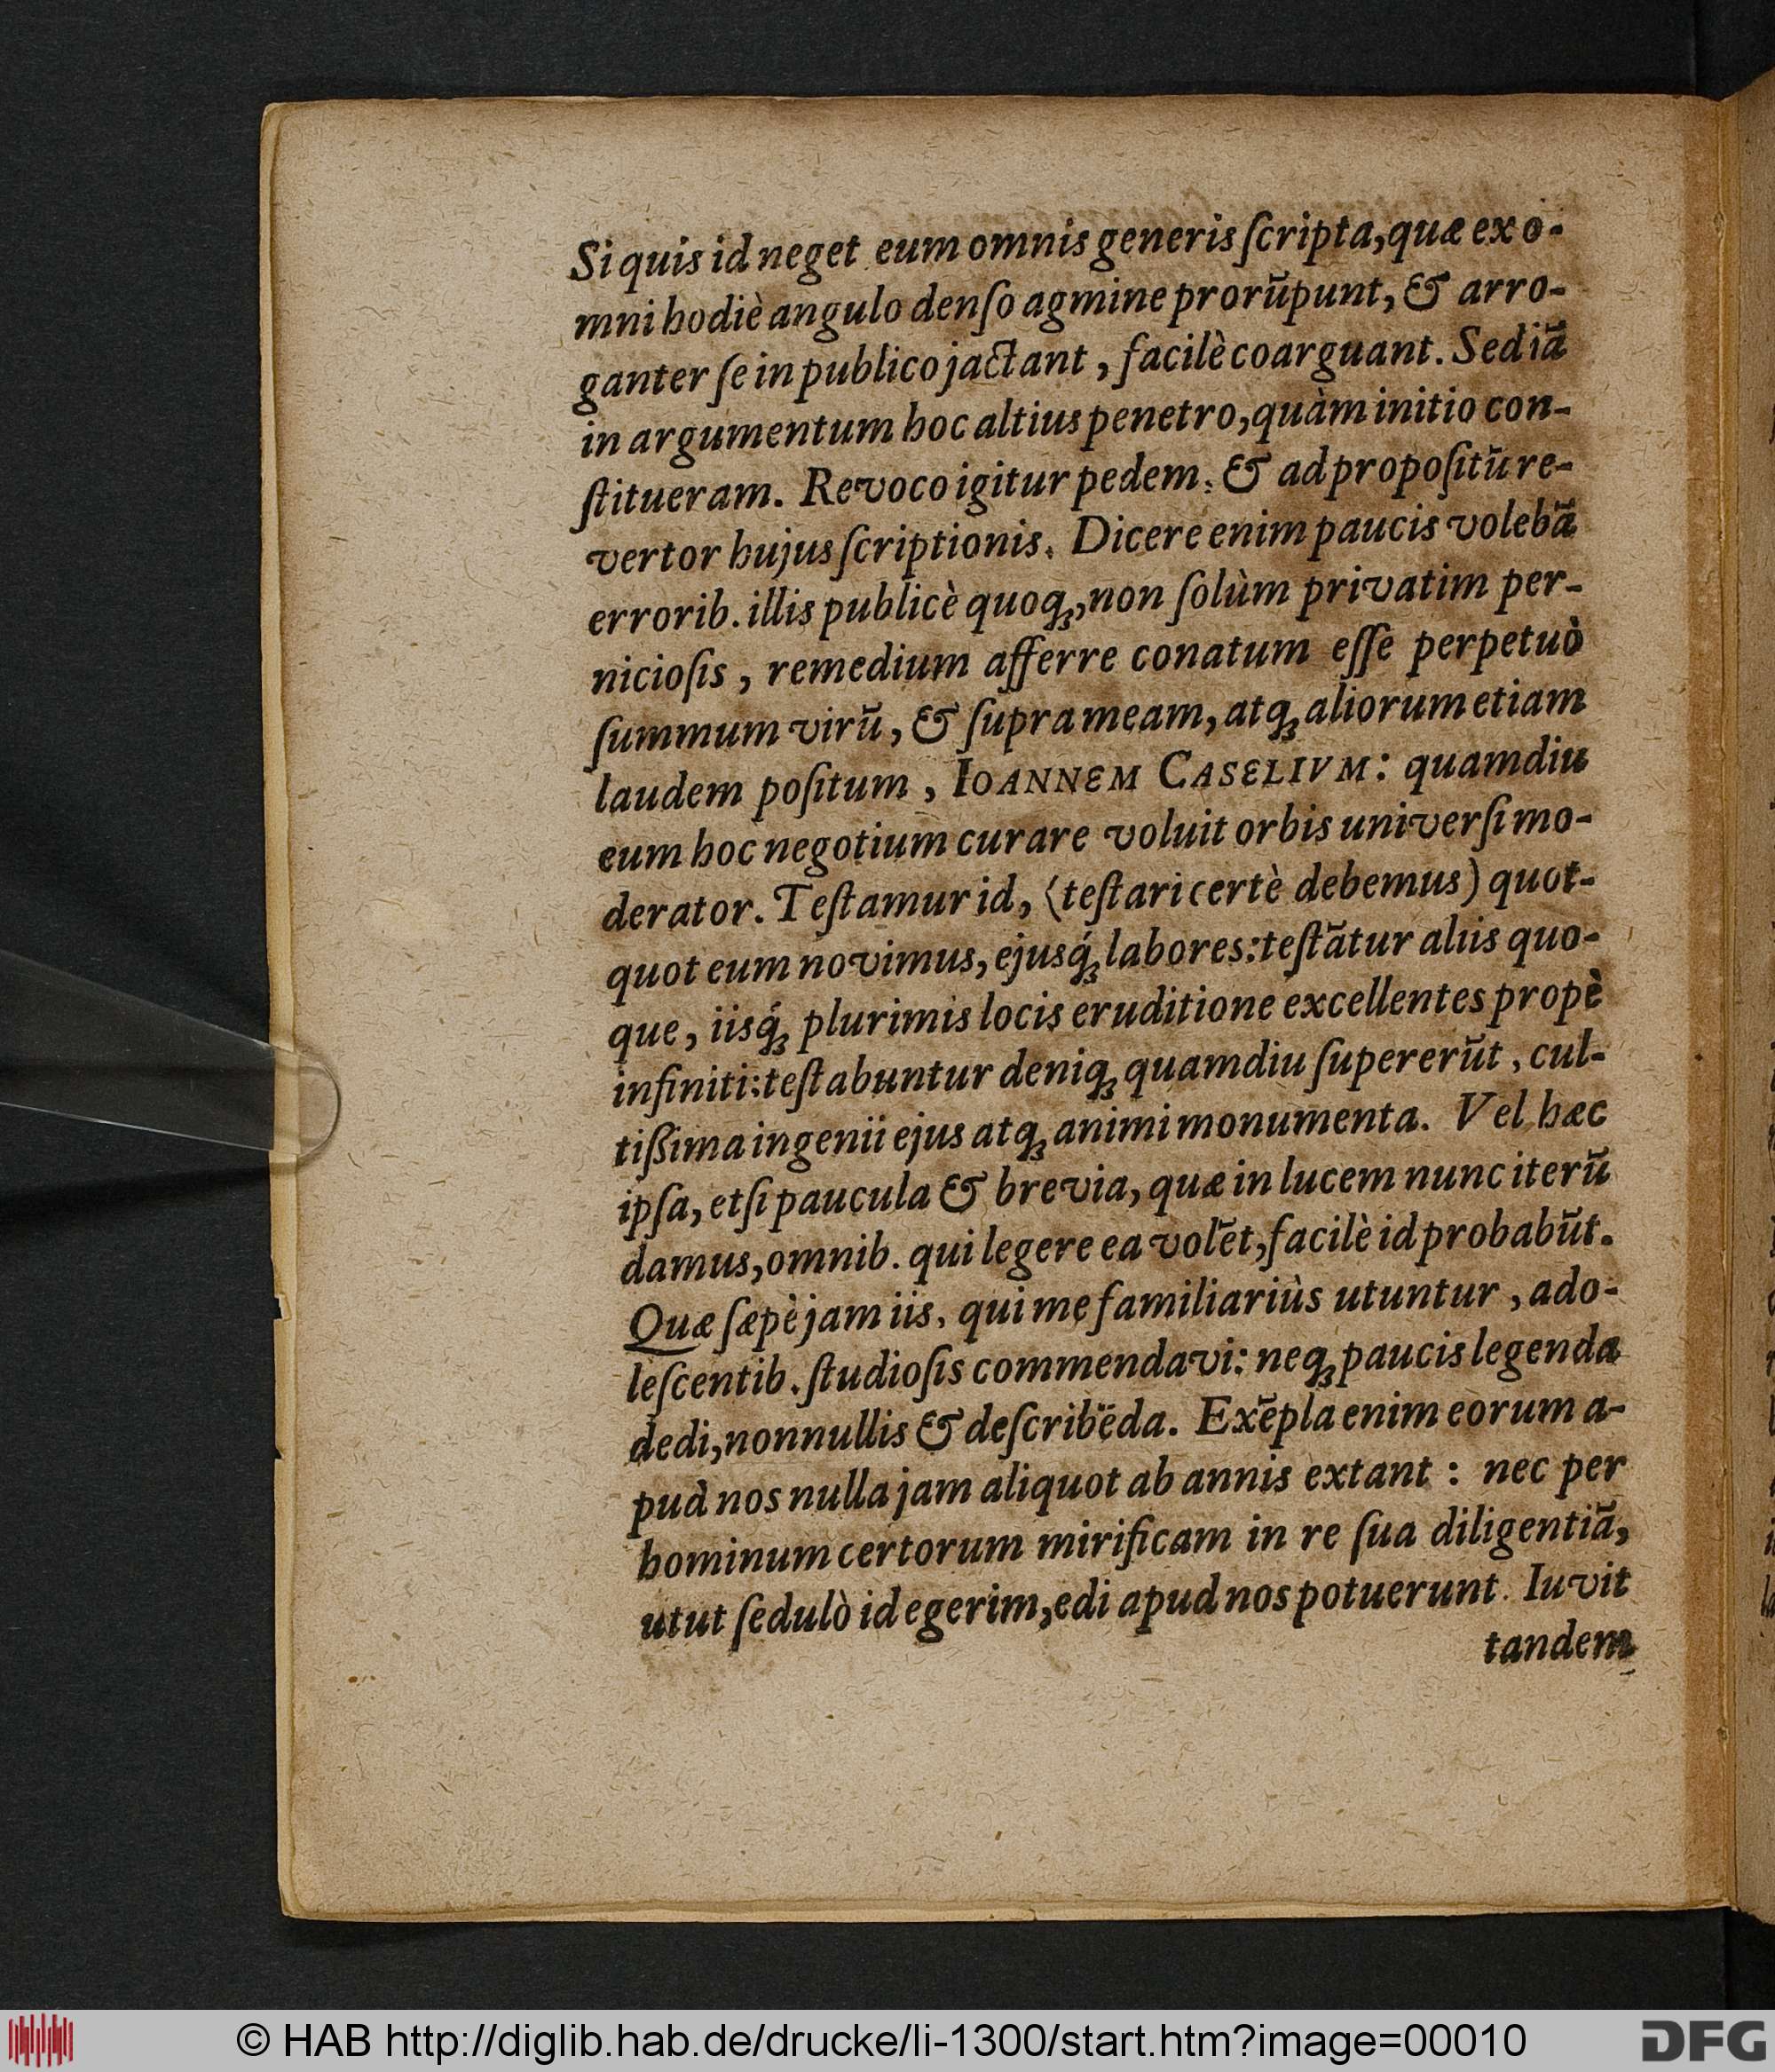 Si quis id neget eum omnis generis ſcripta, quæ ex o-
mni hodiè angulo denſo agmine prorūpunt, & arro-
ganter ſe in publico jactant, facilè coarguant. Sed iā
in argumentum hoc altius penetro, quàm initio con-
ſtitueram. Revoco igitur pedem: & ad propoſitū re-
vertor hujus ſcriptionis. Dicere enim paucis volebā
errorib. illis publicè quoqꝫ, non ſolùm privatim per-
nicioſis, remedium afferre conatum eſſe perpetuò
ſummum virū, & ſupra meam, atqꝫ aliorum etiam
laudem poſitum, IOANNEM CASELIVM: quamdiu
eum hoc negotium curare voluit orbis univerſi mo-
derator. Teſtamur id, (teſtari certè debemus) quot-
quot eum novimus, ejusq́ꝫ labores: teſtātur aliis quo-
que, iisq́ꝫ plurimis locis eruditione excellentes propè
infiniti: teſtabuntur deniqꝫ quamdiu ſupererūt, cul-
tißima ingenii ejus atqꝫ animi monumenta. Vel hæc
ipſa, etſi paucula & brevia, quæ in lucem nunc iterū
damus, omnib. qui legere ea volēt, facilè id probabūt.
Quæ ſæpè jam iis, qui me familiariùs utuntur, ado-
leſcentib. ſtudioſis commendavi: neqꝫ paucis legenda
dedi, nonnullis & deſcribēda. Exēpla enim eorum a-
pud nos nulla jam aliquot ab annis extant: nec per
hominum certorum mirificam in re ſua diligentiā,
utut ſedulò id egerim, edi apud nos potuerunt. Iuvit
tandem
© HAB http://diglib.hab.de/drucke/li-1300/start.htm?image=00010
DFG